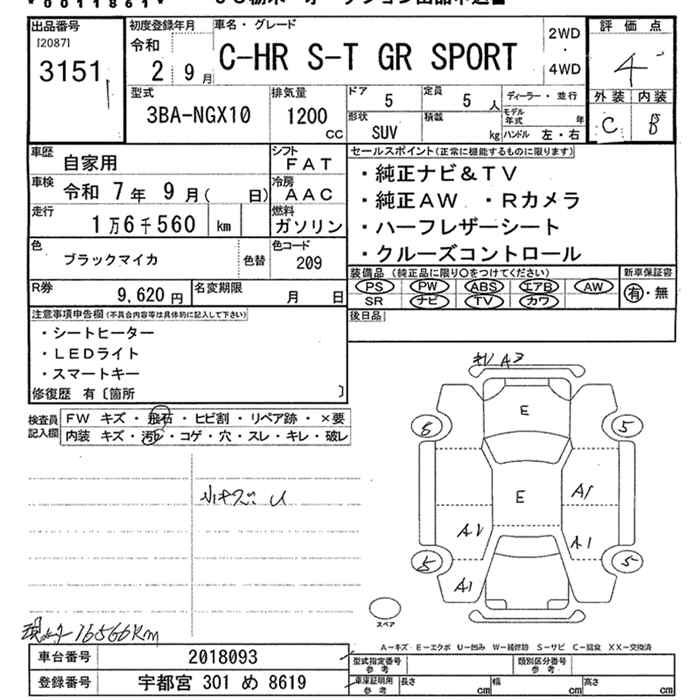 *0011861*
出品番号
[2087]
3151
初度登録年月
令和
2 9月
車名・グレード
C-HR S-T GR SPORT
2WD
・
4WD
評価点
4
外装 内装
C B
型式
3BA-NGX10
排気量
1200
cc
ドア
5
定員
5 人
ディーラー・並行
形状
SUV
積載
kg
モデル年式
年
ハンドル 左・右
車歴
自家用
シフト
FAT
車検
令和 7年 9月( 日)
冷房
AAC
走行
1万6千560 km
燃料
ガソリン
色
ブラックマイカ
色替
色コード
209
R券
9,620 円
名変期限
月 日
セールスポイント(正常に機能するものに限ります)
・純正ナビ&TV
・純正AW ・Rカメラ
・ハーフレザーシート
・クルーズコントロール
装備品(純正品に限り○をつけてください)
PS PW ABS エアB AW
SR ナビ TV カワ
新車保証書
有・無
後日品
注意事項申告欄(不具合内容等は具体的に記入して下さい)
・シートヒーター
・LEDライト
・スマートキー
修復歴 有〔箇所 〕
検査員
記入欄
FW キズ・飛石・ヒビ割・リペア跡・×要
内装 キズ・汚れ・コゲ・穴・スレ・キレ・破レ
小キズ U
キズ A3
E
5
E
A1
A1
5
5
A1
スペア
16566km
A-キズ E-エクボ U-凹み W-補修跡 S-サビ C-腐食 XX-交換済
車台番号
2018093
登録番号
宇都宮 301 め 8619
型式指定番号
参考
類別区分番号
参考
車庫証明用
参考
長さ cm
幅 cm
高さ cm